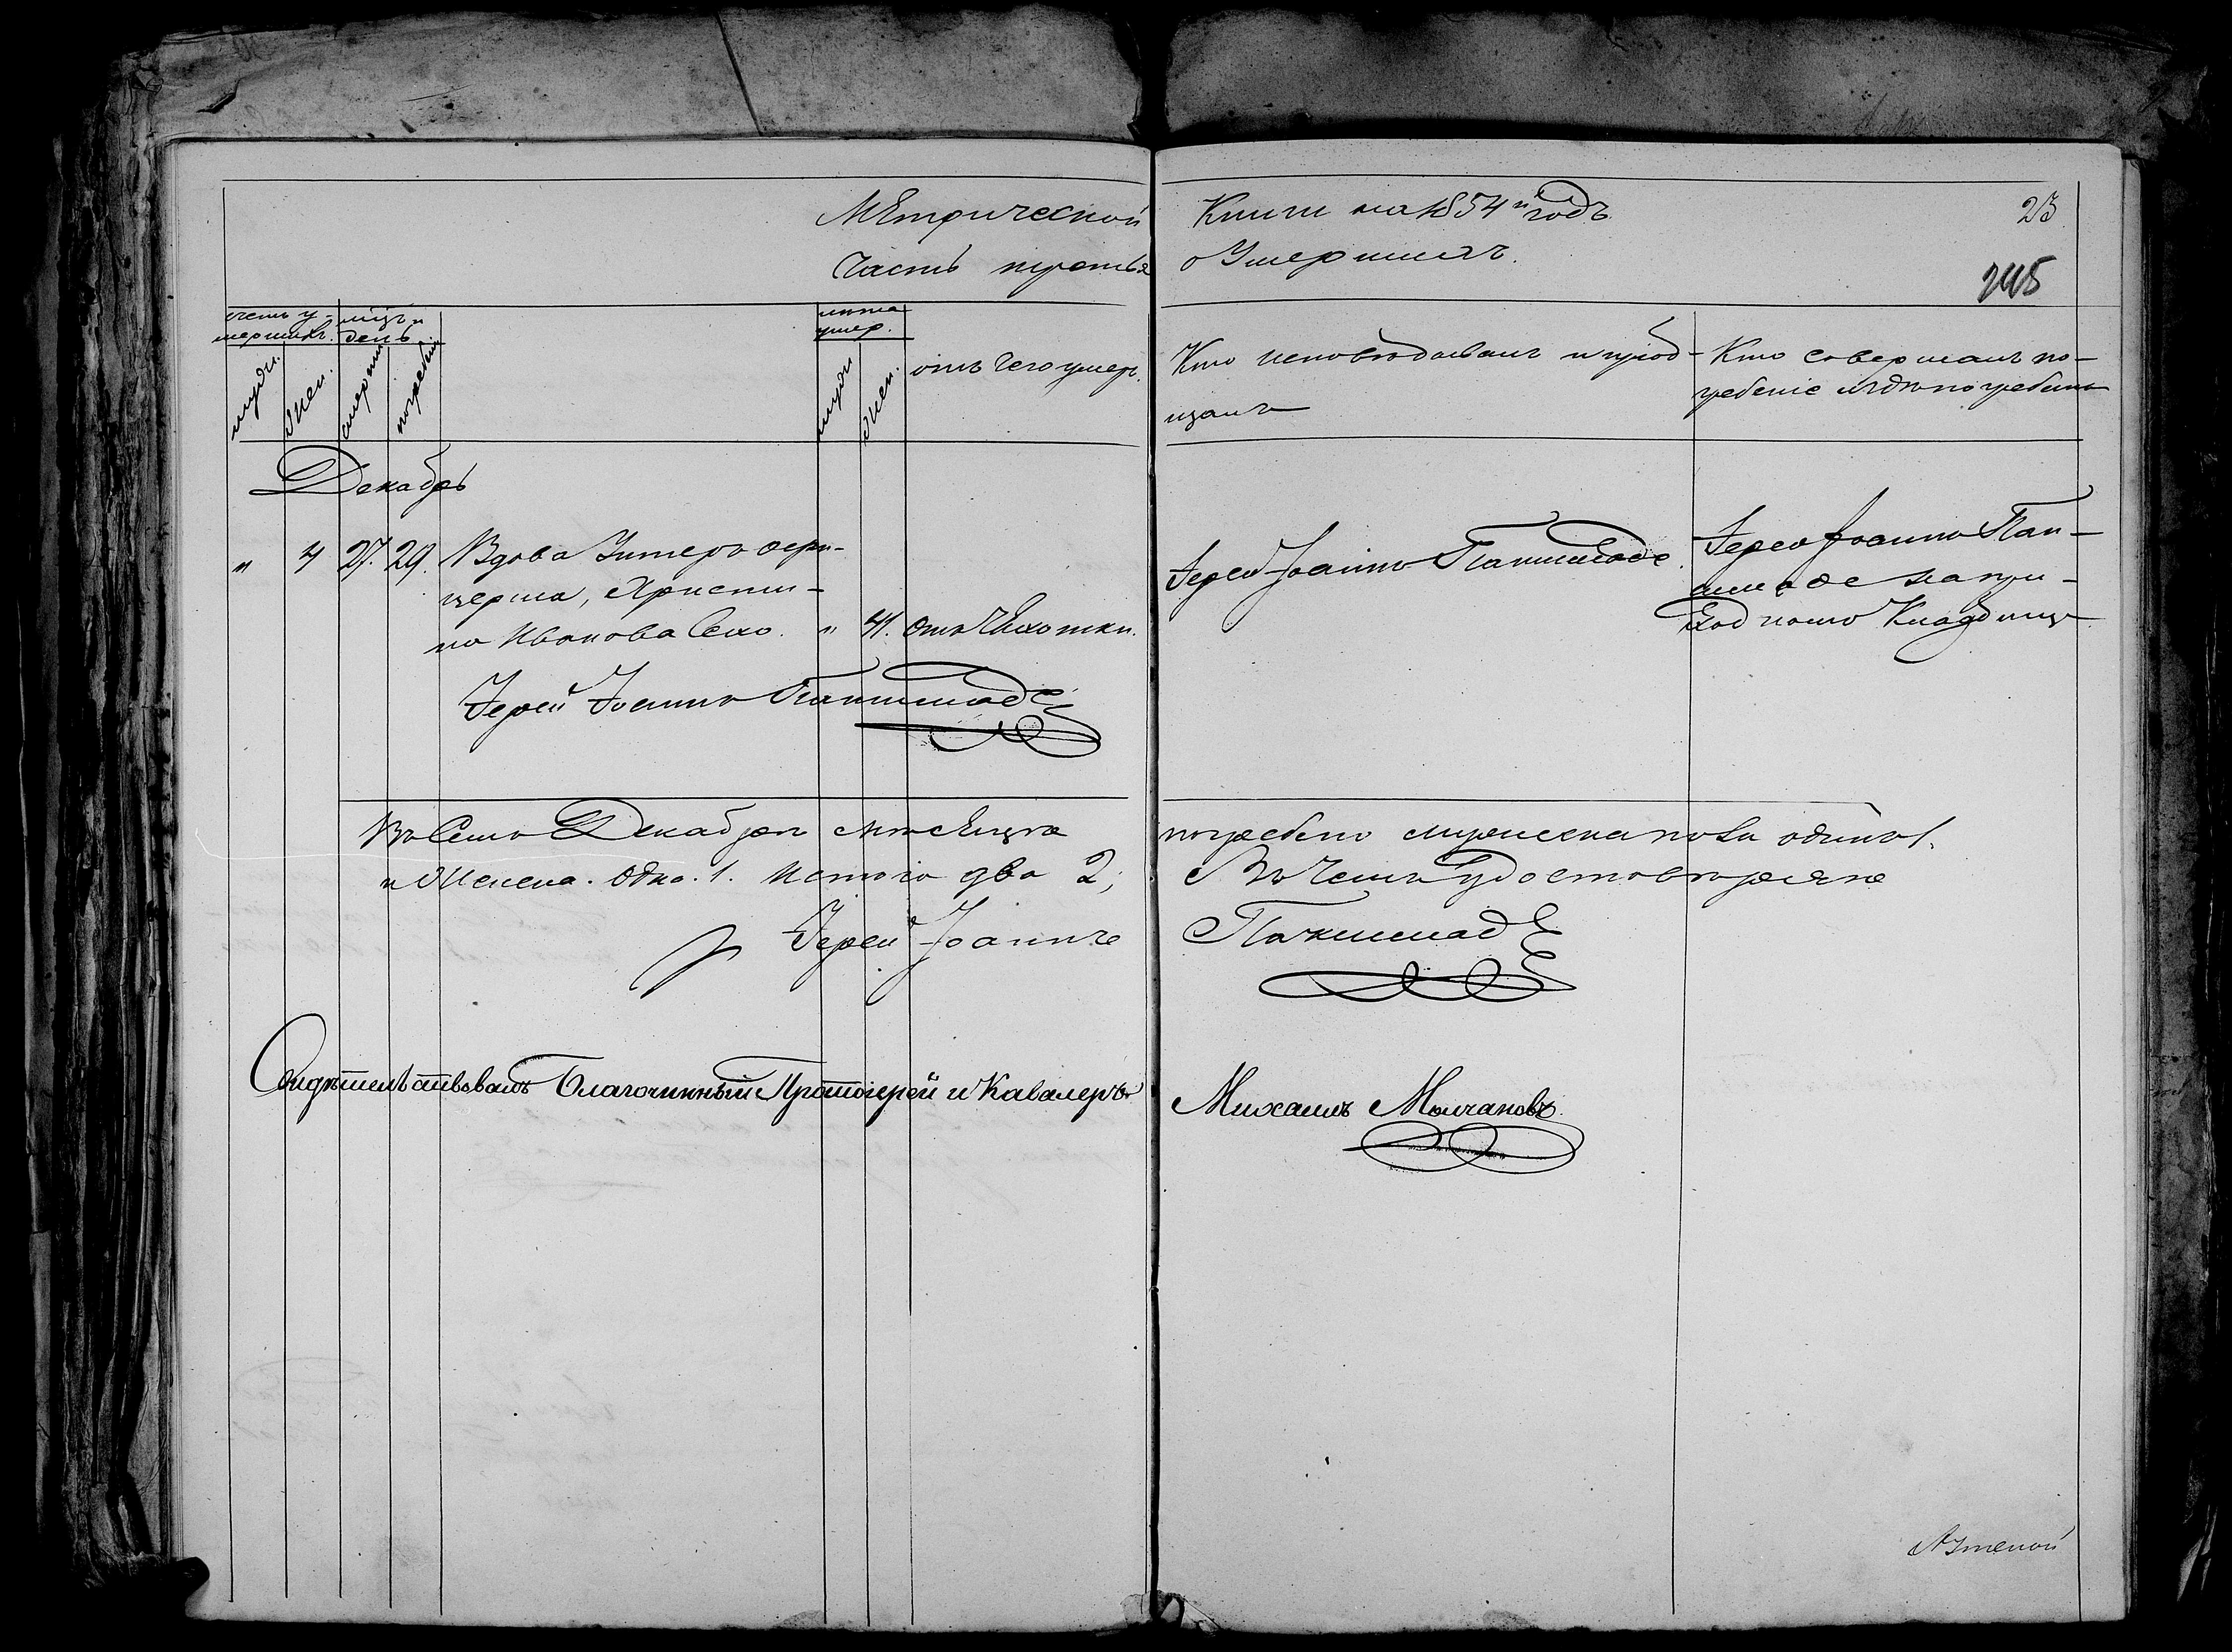 Метрической Книги на 1854й годъ 23
Часть третья о Умершихъ.
245
счетъ у-
мершихъ.
мѣцъ и
день
муж.
жен.
смерти
погребен.
лѣта
умер.
муж.
жен.
отъ чего умеръ.
Кто исповѣдывалъ и приоб-
щалъ
Кто совершалъ по-
гребеніе и гдѣ погребены
Декабрь
" 4 27. 29. Вдова Унтеръ офи-
церша, Христи-
на Иванова " 41. Отъ Чахотки.
Іерей Іоаннъ
Іерей Іоаннъ
на при-
ходскомъ Кладбищѣ
Іерей Іоаннъ
Въ семъ Декабрѣ мѣсяцѣ погребено мужеска пола одинъ 1.
и Женска. Одна. 1. Итого два 2; Въ чемъ Удостовѣряю
Іерей Іоаннъ
Свидѣтельствовалъ Благочинный Протоіерей и Кавалеръ Михаилъ Молчановъ.